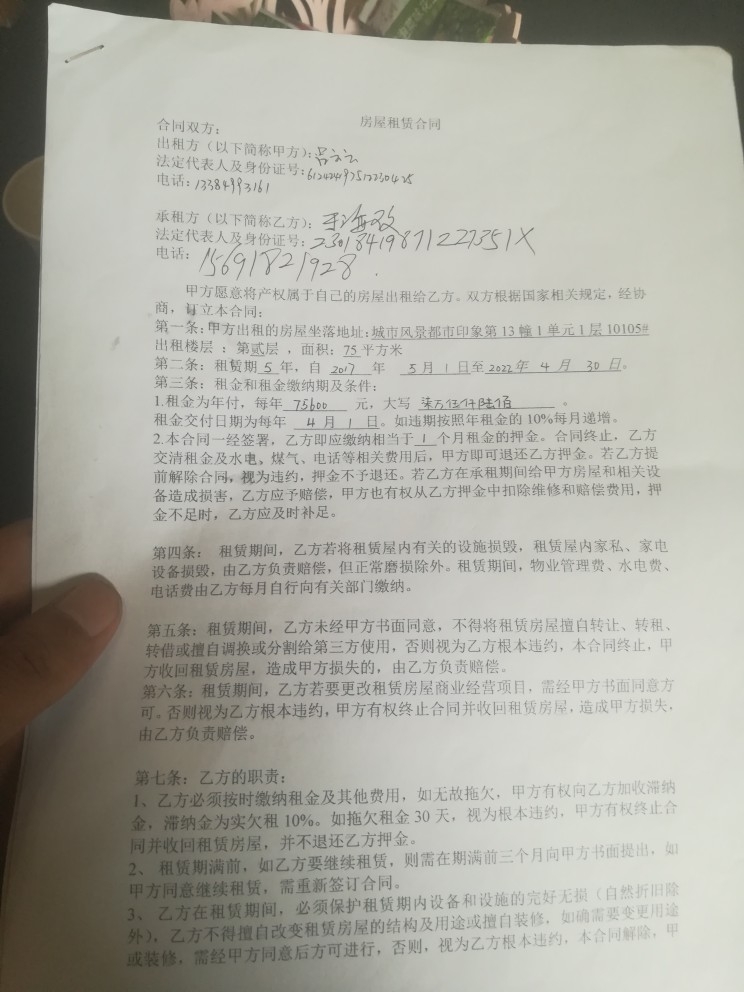 房屋租赁合同
合同双方：
出租方（以下简称甲方）：吕云云
法定代表人及身份证号：612424197512230425
电话：13384993161
承租方（以下简称乙方）：
法定代表人及身份证号：23018419871227351X
电话：15691821928
甲方愿意将产权属于自己的房屋出租给乙方。双方根据国家相关规定，经协
商，订立本合同：
第一条：甲方出租的房屋坐落地址：城市风景都市印象第13幢1单元1层10105#
出租楼层：第贰层，面积：75平方米
第二条：租赁期5年，自2017年5月1日至2022年4月30日。
第三条：租金和租金缴纳期及条件：
1.租金为年付，每年75600元，大写柒万伍仟陆佰。
租金交付日期为每年4月1日。如违期按照年租金的10%每月递增。
2.本合同一经签署，乙方即应缴纳相当于1个月租金的押金。合同终止，乙方
交清租金及水电，煤气、电话等相关费用后，甲方即可退还乙方押金。若乙方提
前解除合同，视为违约，押金不予退还。若乙方在承租期间给甲方房屋和相关设
备造成损害，乙方应予赔偿，甲方也有权从乙方押金中扣除维修和赔偿费用，押
金不足时，乙方应及时补足。
第四条： 租赁期间，乙方若将租赁屋内有关的设施损毁，租赁屋内家私、家电
设备损毁，由乙方负责赔偿，但正常磨损除外。租赁期间，物业管理费、水电费、
电话费由乙方每月自行向有关部门缴纳。
第五条：租赁期间，乙方未经甲方书面同意，不得将租赁房屋擅自转让、转租、
转借或擅自调换或分割给第三方使用，否则视为乙方根本违约，本合同终止，甲
方收回租赁房屋，造成甲方损失的，由乙方负责赔偿。
第六条：租赁期间，乙方若要更改租赁房屋商业经营项目，需经甲方书面同意方
可。否则视为乙方根本违约，甲方有权终止合同并收回租赁房屋，造成甲方损失，
由乙方负责赔偿。
第七条：乙方的职责：
1、乙方必须按时缴纳租金及其他费用，如无故拖欠，甲方有权向乙方加收滞纳
金，滞纳金为实欠租10%。如拖欠租金30天，视为根本违约，甲方有权终止合
同并收回租赁房屋，并不退还乙方押金。
2、 租赁期满前，如乙方要继续租赁，则需在期满前三个月向甲方书面提出，如
甲方同意继续租赁，需重新签订合同。
3、 乙方在租赁期间，必须保护租赁期内设备和设施的完好无损（自然折旧除
外），乙方不得擅自改变租赁房屋的结构及用途或擅自装修，如确需要变更用途
或装修，需经甲方同意后方可进行，否则，视为乙方根本违约，本合同解除，甲